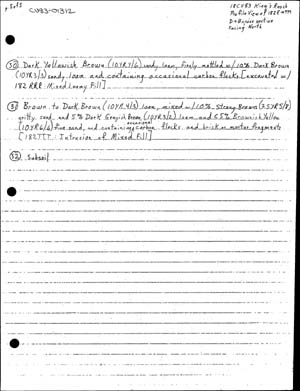 p. 5 of 5
CV83-01312
18CV83 King's Reach
Profile View of 182R-TTT
Facing North
(30) Dark Yellowish Brown (10YR4/6) sandy loam, finely mottled w/ 10% Dark Brown
(10YR3/3) sandy loam and containing occasional carbon flecks [excavated w/
182 RRR: Mixed Loamy Fill]
(31) Brown to Dark Brown (10YR4/3) loam, mixed w/ 10% Strong Brown (7.5YR5/8)
gritty sand, and 5% Dark Grayish Brown loam and <5% Brownish Yellow
(10YR6/6) fine sand, and containing occasional carbon flecks and brick or mortar fragments
[182TTT: Intrusion of Mixed Fill]
(32) Subsoil